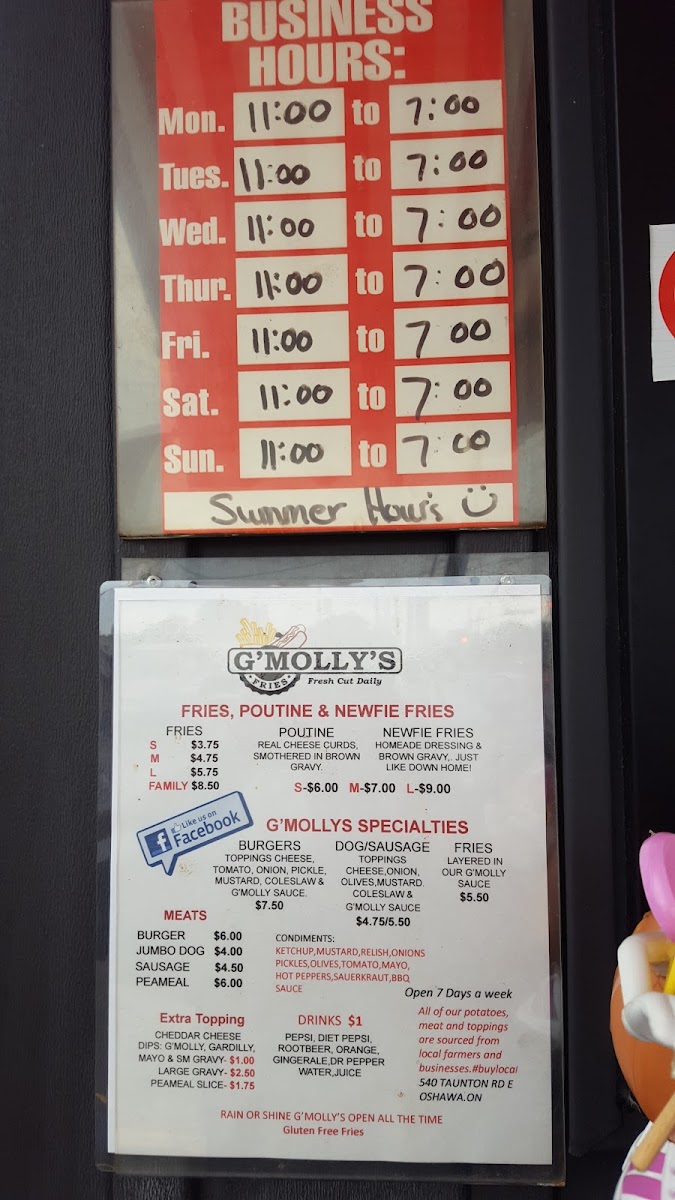 BUSINESS
HOURS:
Mon. 11:00 to 7:00
Tues. 11:00 to 7:00
Wed. 11:00 to 7:00
Thur. 11:00 to 7:00
Fri. 11:00 to 7 00
Sat. 11:00 to 7:00
Sun. 11:00 to 7:00
Summer Hour's
G'MOLLY'S
FRIES
Fresh Cut Daily
FRIES, POUTINE & NEWFIE FRIES
FRIES
S $3.75
M $4.75
L $5.75
FAMILY $8.50
POUTINE
REAL CHEESE CURDS,
SMOTHERED IN BROWN
GRAVY.
NEWFIE FRIES
HOMEADE DRESSING &
BROWN GRAVY,. JUST
LIKE DOWN HOME!
S-$6.00 M-$7.00 L-$9.00
Like us on
Facebook
G'MOLLYS SPECIALTIES
BURGERS
TOPPINGS CHEESE,
TOMATO, ONION, PICKLE,
MUSTARD, COLESLAW &
G'MOLLY SAUCE.
$7.50
DOG/SAUSAGE
TOPPINGS
CHEESE,ONION,
OLIVES,MUSTARD.
COLESLAW &
G'MOLLY SAUCE
$4.75/5.50
FRIES
LAYERED IN
OUR G'MOLLY
SAUCE
$5.50
MEATS
BURGER $6.00
JUMBO DOG $4.00
SAUSAGE $4.50
PEAMEAL $6.00
CONDIMENTS:
KETCHUP,MUSTARD,RELISH,ONIONS
PICKLES,OLIVES,TOMATO,MAYO,
HOT PEPPERS,SAUERKRAUT,BBQ
SAUCE
Open 7 Days a week
Extra Topping
CHEDDAR CHEESE
DIPS: G'MOLLY, GARDILLY,
MAYO & SM GRAVY- $1.00
LARGE GRAVY- $2.50
PEAMEAL SLICE- $1.75
DRINKS $1
PEPSI, DIET PEPSI,
ROOTBEER, ORANGE,
GINGERALE,DR PEPPER
WATER,JUICE
All of our potatoes,
meat and toppings
are sourced from
local farmers and
businesses.#buylocal
540 TAUNTON RD E
OSHAWA.ON
RAIN OR SHINE G'MOLLY'S OPEN ALL THE TIME
Gluten Free Fries